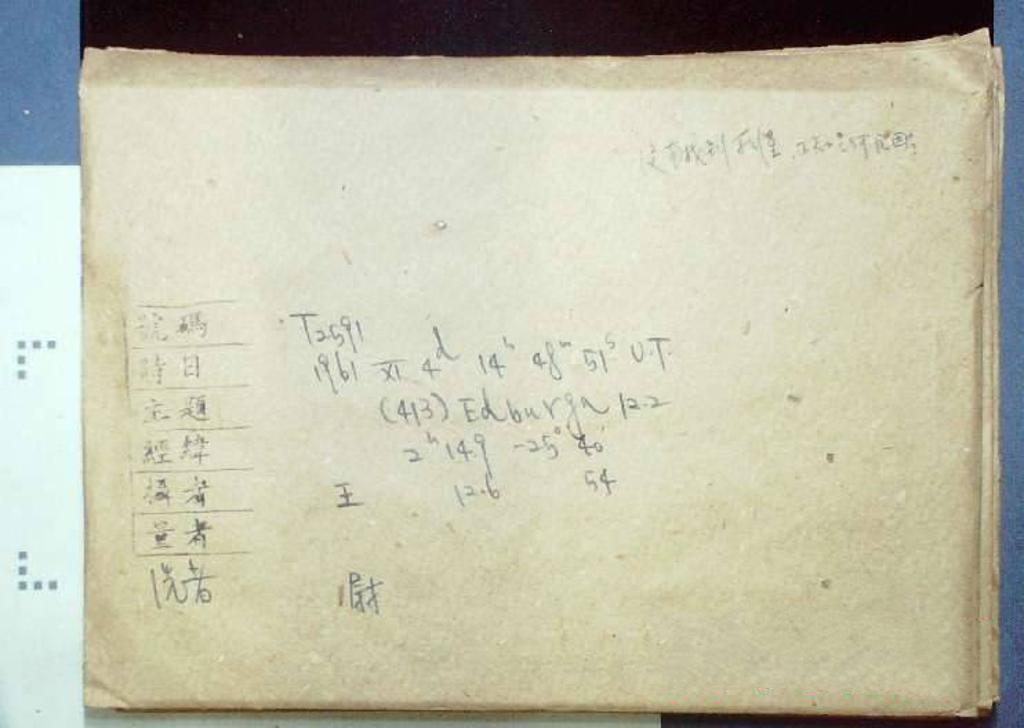 沒有找到
號碼 T2591
時日 1961 XI 4d 14h 48m 51s U.T.
主題 (413) Edburga 12.2
經緯 2h 14.9 -25° 40'
攝者 王 12.6 54
量者
洗者 尉